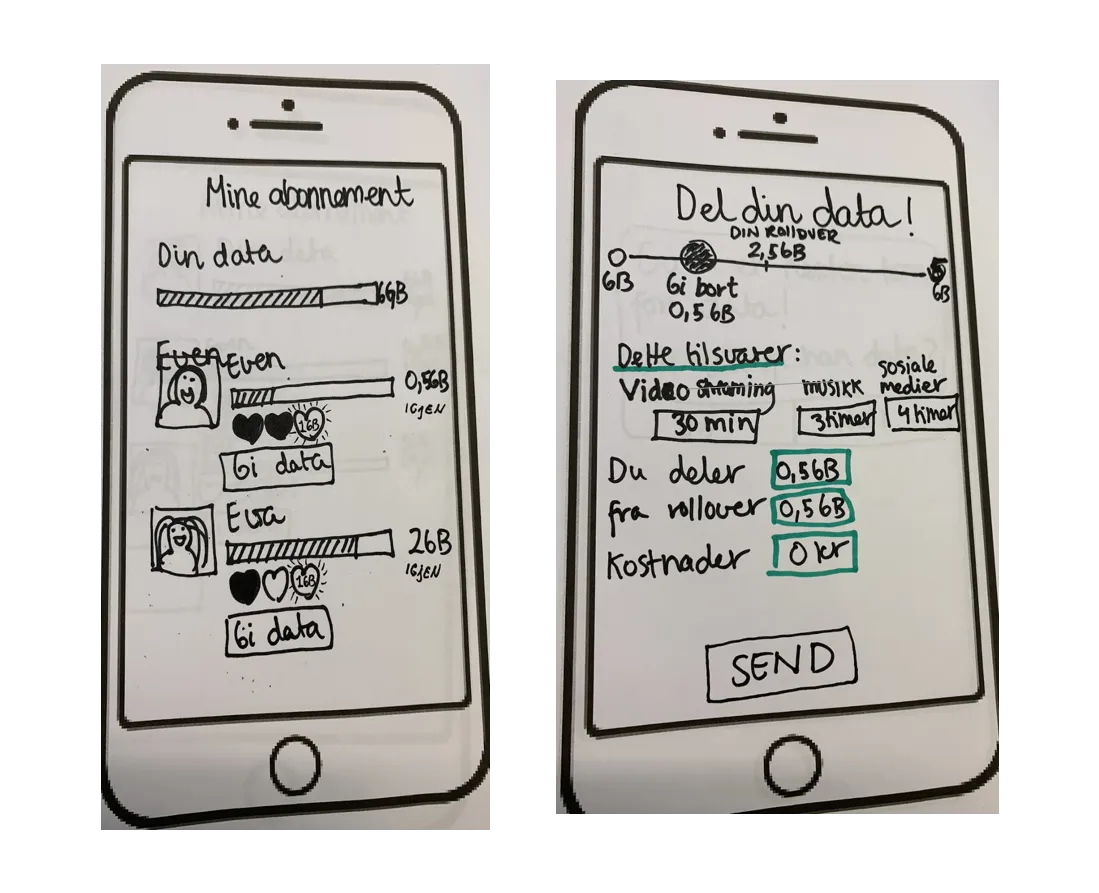 Mine abonnement
Din data
6GB
Even Even
0,5GB
IGJEN
1GB
Gi data
Eva
2GB
IGJEN
1GB
Gi data
Del din data!
DIN ROLLOVER
2,5GB
6B
6B
Gi bort
0,5GB
Dette tilsvarer:
Video streaming musikk sosiale medier
30 min 3 timer 4 timer
Du deler 0,5GB
fra rollover 0,5GB
Kostnader 0 kr
SEND